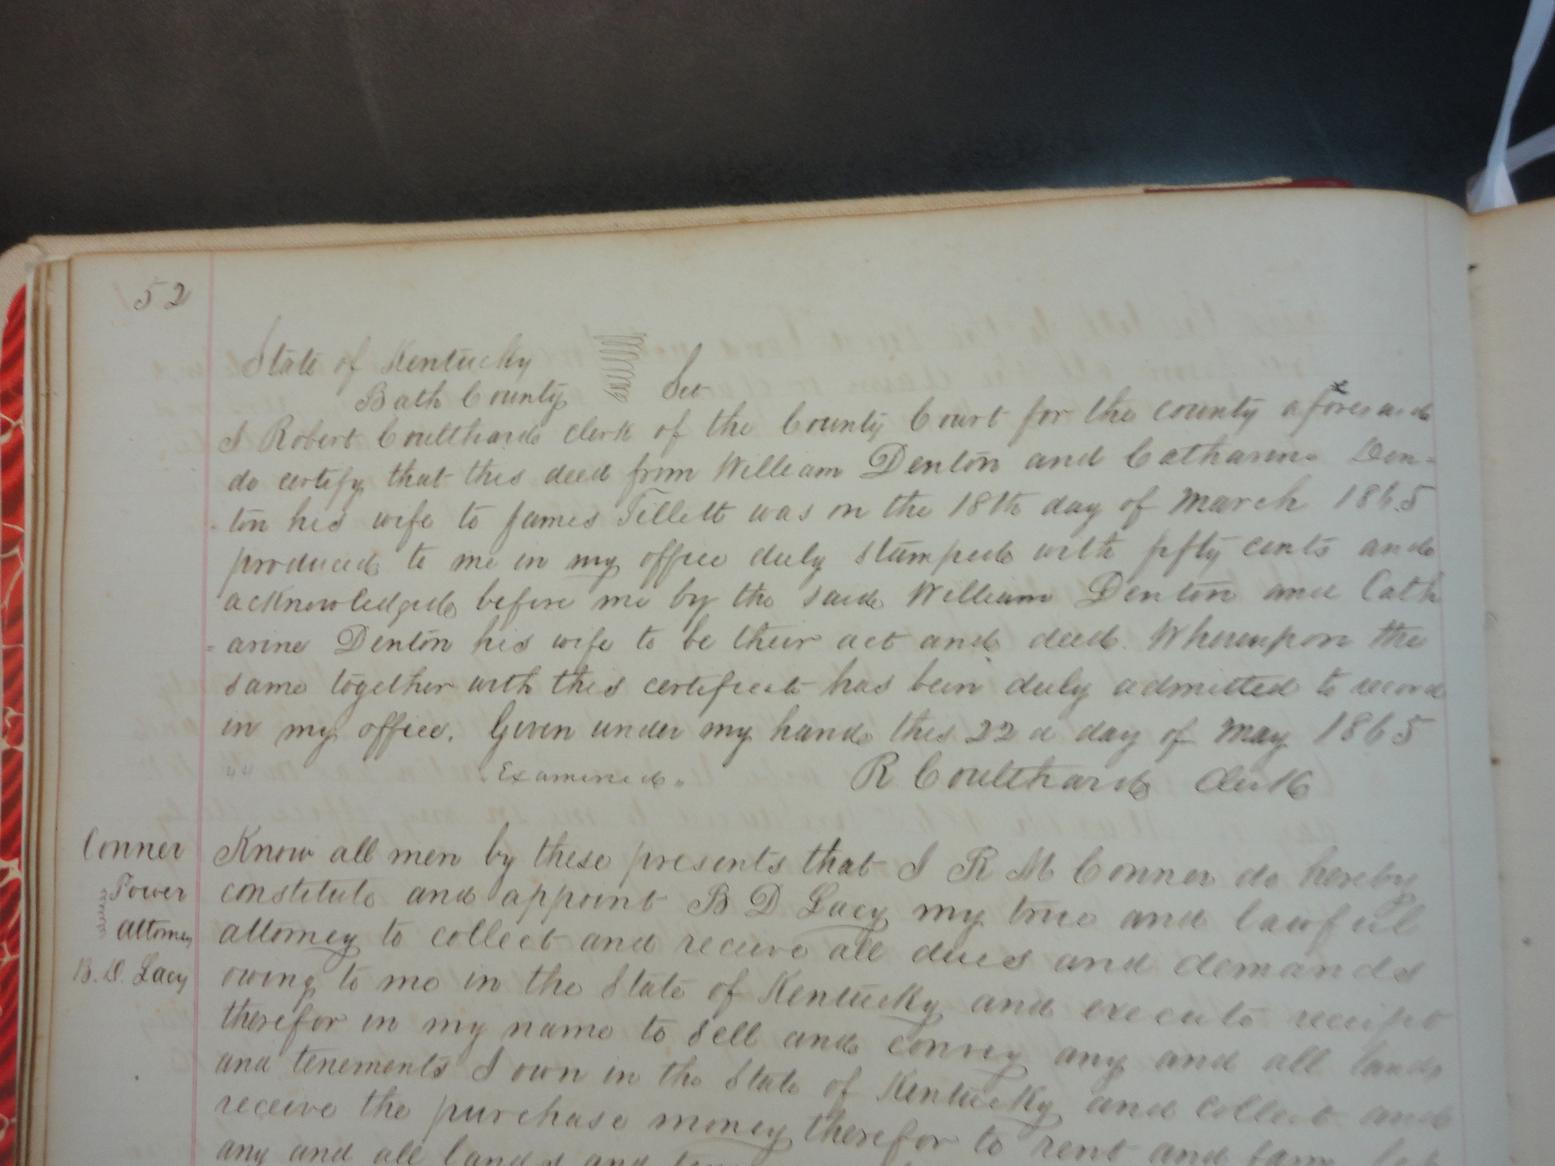 52
State of Kentucky
Bath County Sct
I Robert Coulthard clerk of the County Court for the county aforesaid
do certify that this deed from William Denton and Catharine Den-
-ton his wife to James Tillett was on the 18th day of March 1865
produced to me in my office duly stamped with fifty cents and
acknowledged before me by the said William Denton and Cath
-arine Denton his wife to be their act and deed. Whereupon the
same together with this certificate has been duly admitted to record
in my office. Given under my hand this 22d day of May 1865
Examined. R Coulthard Clerk
Conner
Power
Attorney
B. D. Lacy
Know all men by these presents that I R M Conner do hereby
constitute and appoint B D Lacy my true and lawful
attorney to collect and receive all dues and demands
owing to me in the State of Kentucky and execute receipt
therefor in my name to sell and convey any and all lands
and tenements I own in the State of Kentucky and collect and
receive the purchase money therefor to rent and farm let
any and all lands and